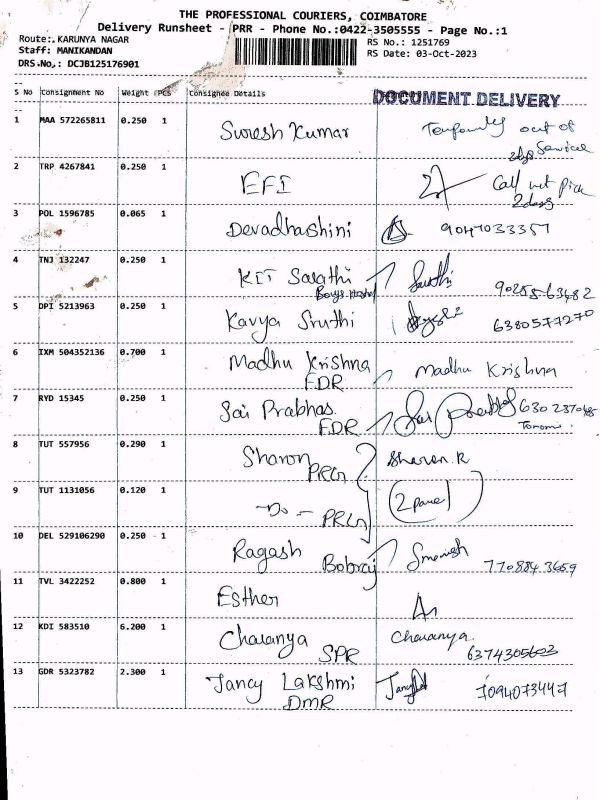 THE PROFESSIONAL COURIERS, COIMBATORE
Delivery Runsheet - PRR - Phone No.:0422-3505555 - Page No.:1
Route: KARUNYA NAGAR
RS No.: 1251769
Staff: MANIKANDAN
RS Date: 03-Oct-2023
DRS.No.: DCJB125176901
S No Consignment No Weight PCS Consignee Details
DOCUMENT DELIVERY
1 MAA 572265811 0.250 1 Suresh Kumar out of
Service
2 TRP 4267841 0.250 1 EFI Call not pick
2 days
3 POL 1596785 0.065 1 Devadhashini 9047033357
4 TNJ 132247 0.250 1 KIT Sarathi
Boys Hostel 90255-63482
5 DPI 5213963 0.250 1 Kavya Sruthi 6380577270
6 IXM 504352136 0.700 1 Madhu Krishna Madhu Krishna
FDR
7 RYD 15345 0.250 1 Sai Prabhas
FDR
8 TUT 557956 0.290 1 Sharon Sharon.R
PRG
9 TUT 1131056 0.120 1 - Do - PRG
10 DEL 529106290 0.250 - 1 Ragash
7708843659
11 TVL 3422252 0.800 1 Esther
12 KDI 583510 6.200 1 Charanya Charanya.
SPR 6374305603
13 GDR 5323782 2.300 1 Jancy Lakshmi 7094073447
DMR